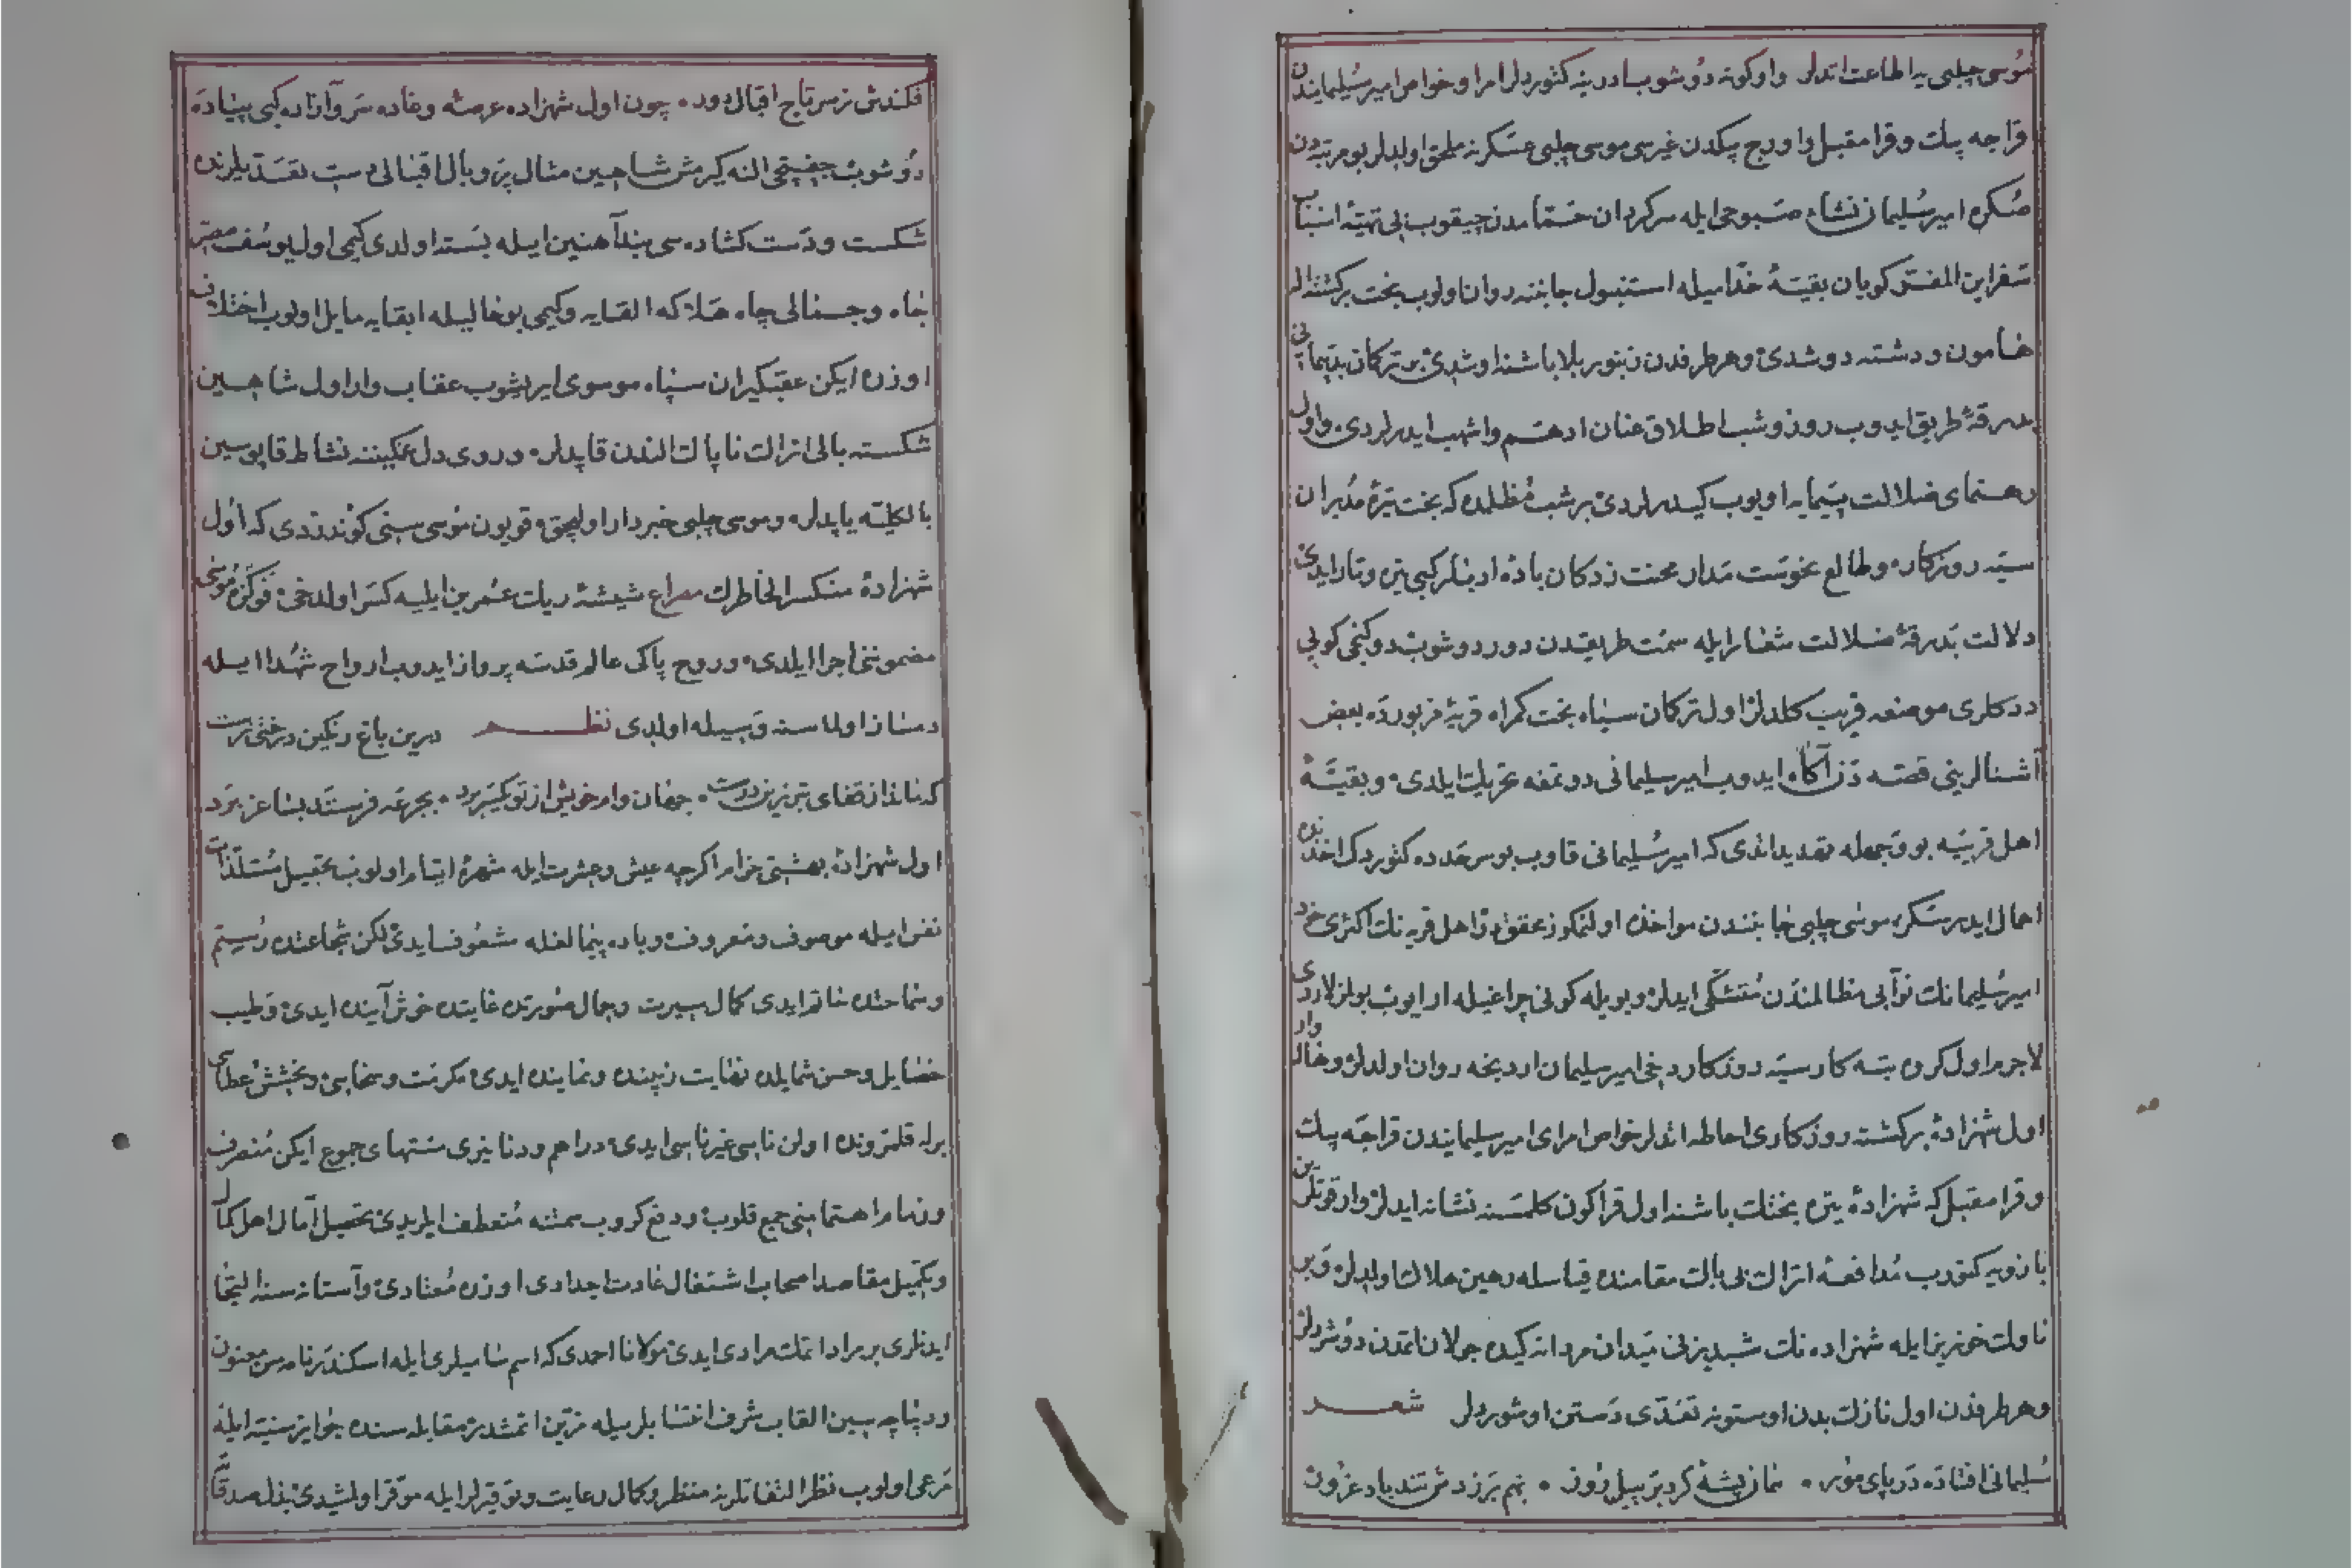 موسی چلبی یه اطاعت اتدلر واوکونه دوشوب ادرنه یه کتوردیلر امرا وخواص امیر سلیماندن
قراجه بیك وقرا مقبل واورج بیکدن غیری موسی چلبی عسکرنه ملحق اولدیلر بو مرتبه دن
صکره امیر سلیمان نشاء صبوحی ایله سرکردان حمامدن چیقوب بی تهیهٔ اسباب
سفر این المفر کویان بقیهٔ خدامیله استنبول جانبنه روان اولوب بخت برکشته الر
هامون ودشته دوشدی وهر طرفدن زنبور بلا باشنه اوشدی بر ترکمان بدیمانی
بدرقهٔ طریق ایدوب روز وشب اطلاق عنان ادهم واشهب ایدرلردی واول
رهنمای ضلالت پیمایه اویوب کیدرلردی بر شب مظلمده که بخت تیرهٔ مدبران
سیه روزکار وطالع نحوست مدار محنت زدکان بادهٔ ادبار کبی تیره وتار ایدی
دلالت بدرقهٔ ضلالت شعار ایله سمت طریقدن دور دوشوب دوکنجی کویی
ددکلری موضعه قریب کلدیلر اول ترکان سیاه بخت کمراه قریهٔ مزبورده بعض
آشنالرینی قصه دن آکاه ایدوب امیر سلیمانی دوتمغه تحریك ایلدی وبقیهٔ
اهل قریه بو وجهله تهدید اتدی که امیر سلیمانی قاوب بو سرحدده کتوردک اخذنده
اهمال ایدرسکز موسی چلبی جانبندن مواخذه اولنمکوز محققدر اهل قریه نك اکثری خود
امیر سلیمانك نوآبی مظالمندن متشکی ایدیلر وبویله کونی چراغیله ارایوب بولزلاردی
لاجرم اول کروه تبه کار سیه روزکار دخی امیر سلیمان اردنجه روان اولدیلر وهاله وار
اول شهزادهٔ برکشته روزکاری احاطه اتدیلر خواص امرای امیر سلیماندن قراجه بیك
وقرا مقبل که شهزادهٔ تیره بختك باشنه اول قرا کون کلمسنه نشانه ایدیلر وار قوتلرین
بازویه کتورب مدافعهٔ اتراك بی باك مقامنده قیاسله رهین هلاك اولدیلر وبر
ناوك خونریز ایله شهزاده نك شبدیزنی میدان مردانه کیده جولان اتمدن دوشردیلر
وهر طرفدن اول نازك بدن اوستنه تعدی دستن اوشوردیلر شعر
سلیمانی افتاده در پای مور • نماز پشه کرد بر پیل زور • بهم برزدش تند باد غرور
فکندش ز سر تاج اقبال دور • چون اول شهزاده عرصهٔ وغاده سرو آزاده کبی پیاده
دوشوب جفتجی النه کیرمش شاهین مثال پر وبال اقبالی دست تعدیلرنده
شکست ودست کشاده سی بند آهنین ایله بسته اولدی کیمی اول یوسف مصر
جاه وجمالی چاه هلاکه القایه وکیمی بو خالیله ابقایه مایل اولوب اختلاف
اوزره ایکن عقبکیران سپاه موسوی ایریشوب عقاب وار اول شاهین
شکسته بالی اتراك ناپاك الندن قاپدیلر ودروی دل غمکیننه نشاط قاپوسین
بالکلیه یاپدیلر وموسی چلبی خبردار اولیجق قویون موسی سینی کوندردی که اول
شهزادهٔ منکسر الخاطرك مصراع شیشهٔ ریات عمرین ایلیه کسر اولدخی فوکزه موسی
مضموننی اجرا ایلدی وروح پاکی عالم قدسه پرواز ایدوب ارواح شهدا ایله
دمساز اولماسنه وسیله اولدی نظم درین باغ رنکین درختی نرست
که ماند از قضای تبرزن درست • جهان وام خویش از تو یکسر برد • بجرعه فرستد بساغر برد
اول شهزادهٔ بهشتی خرام اکرچه عیش وعشرت ایله شهرهٔ ایام اولوب تحصیل مستلذات
نفس ایله موصوف ومعروف وباده پیمالغله مشعوف ایدی لکن شجاعتده رستم
وسماحتده حاتم ایدی کمال سیرت وجمال صورتده غایتده خوش آینده ایدی وطیب
خصایل وحسن شمایلده نهایت زیبنده ونماینده ایدی مکرمت وسخاسی وبخشش عطاسی
برله قلمرونده اولن ناسی غیر ناسی ایدی دراهم ودنانیری منتهای جموع ایکن متصرف
وزمام اهتمامنی جمع قلوب ودفع کروب سمتنه منعطف ایلریدی تحصیل آمال اهل کمال
وتکمیل مقاصد اصحاب اشتغال عادت اجدادی اوزره معتادی وآستانه سنه التجا
ایدنلری بر مراد اتمك مرادی ایدی مولانا احمدی که اسم سامیلری ایله اسکندرنامه سن معنون
ودیباچه سین القاب شرف انتسابلریله مزین اتمشدر مقابله سنده جوایز سنیه ایله
مرعی اولوب نظر التفاتلرنه منظر وکمال رعایت وتوقیرلر ایله موقر اولمشدی بذل صدقات